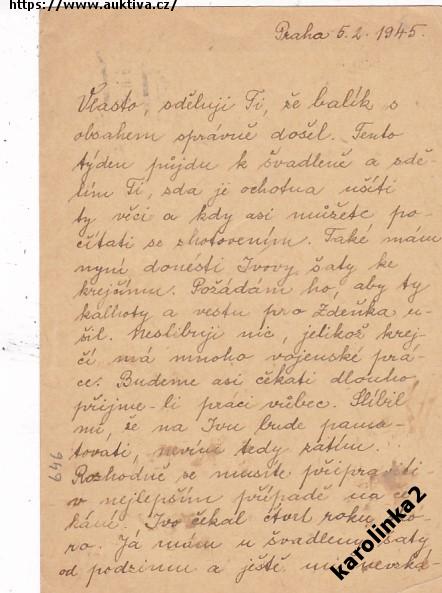 https://www.auktiva.cz/
Praha 5.2.1945.
Vlasto, sděluji Ti, že balík s
obsahem správně došel. Tento
týden půjdu k švadleně a sdě-
lím Ti, zda je ochotna ušíti
ty věci a kdy asi můžete po-
čítati se zhotovením. Také mám
nyní donésti Ivovy šaty ke
krejčímu. Požádám ho, aby ty
kalhoty a vestu pro Zdeňka u-
šil. Neslibuji nic, jelikož krej-
čí má mnoho vojenské prá-
ce. Budeme asi čekati dlouho,
přijme-li práci vůbec. Slíbil
mi, že na Ivu bude pama-
tovati, nevím tedy zatím.
Rozhodně se musíte připraviti
v nejlepším případě na če-
kání. Ivo čekal čtvrt roku
Já mám u švadleny šaty
od podzimu a ještě mi
646
karolinka2